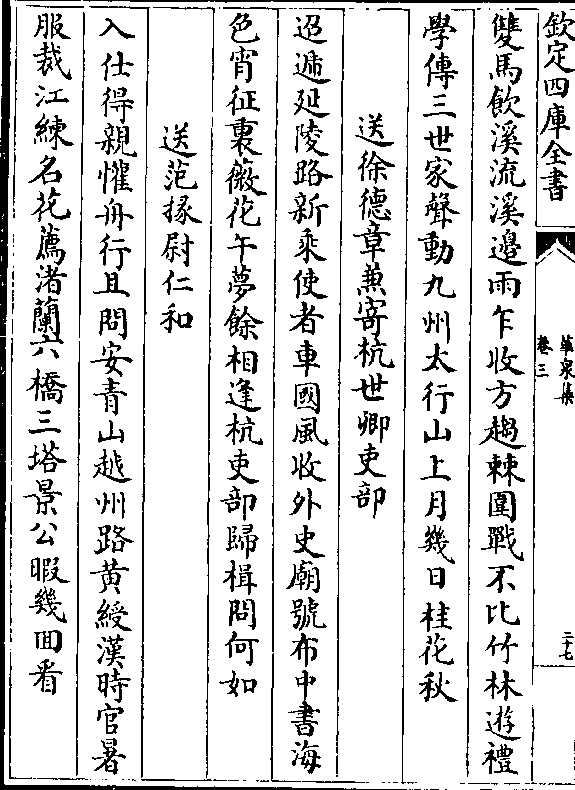 欽定四庫全書
華泉集
卷三
二十七
雙馬飲溪流溪邊雨乍收方趨棘圍戰不比竹林遊禮
學傳三世家聲動九州太行山上月幾日桂花秋
送徐德章兼寄杭世卿吏部
迢遞延陵路新乘使者車國風收外史廟號布中書海
色宵征裏薇花午夢餘相逢杭吏部歸楫問何如
送范掾尉仁和
入仕得親懽舟行且問安青山越州路黃綬漢時官暑
服裁江練名花薦渚蘭六橋三塔景公暇幾囬看